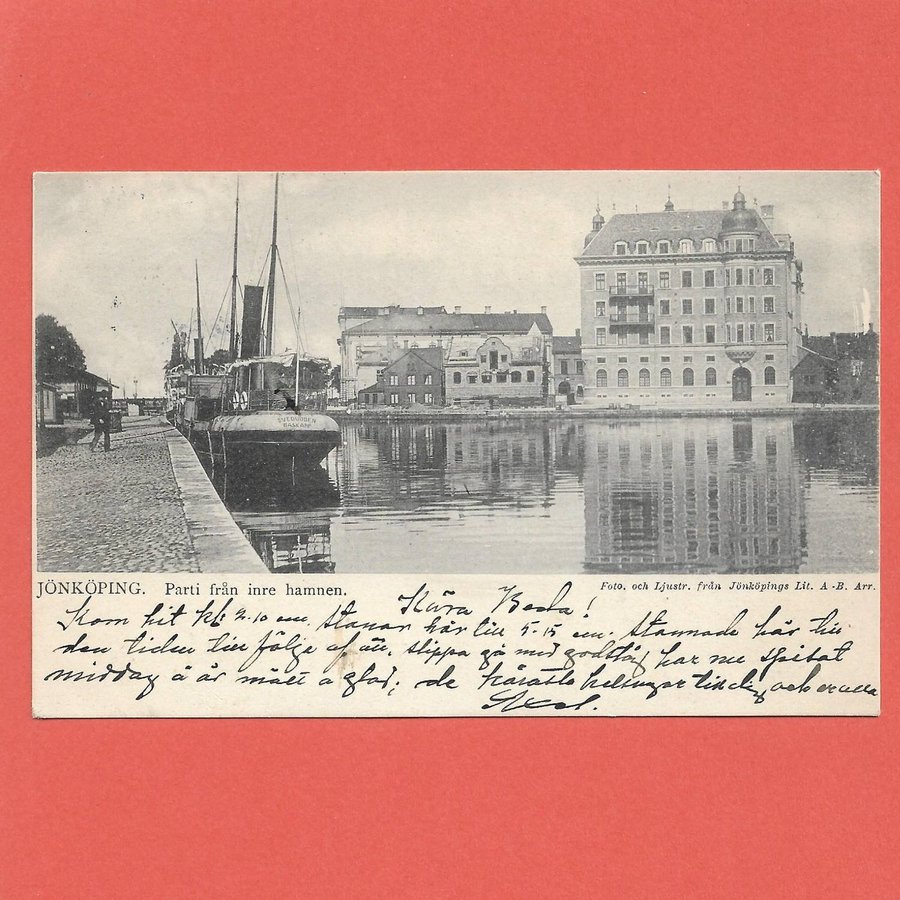 BASKARP
JÖNKÖPING. Parti från inre hamnen.
Foto. och Ljustr. från Jönköpings Lit. A.-B. Arr.
Kära Beda!
Kom hit kl: 2.10 em. stanar här till 5.15 em. stannade här till
den tiden till följe af att, slippa gå med godståg har nu spisat
middag å är mätt å glad; de käraste helsingar till dig och er alla
Axel.